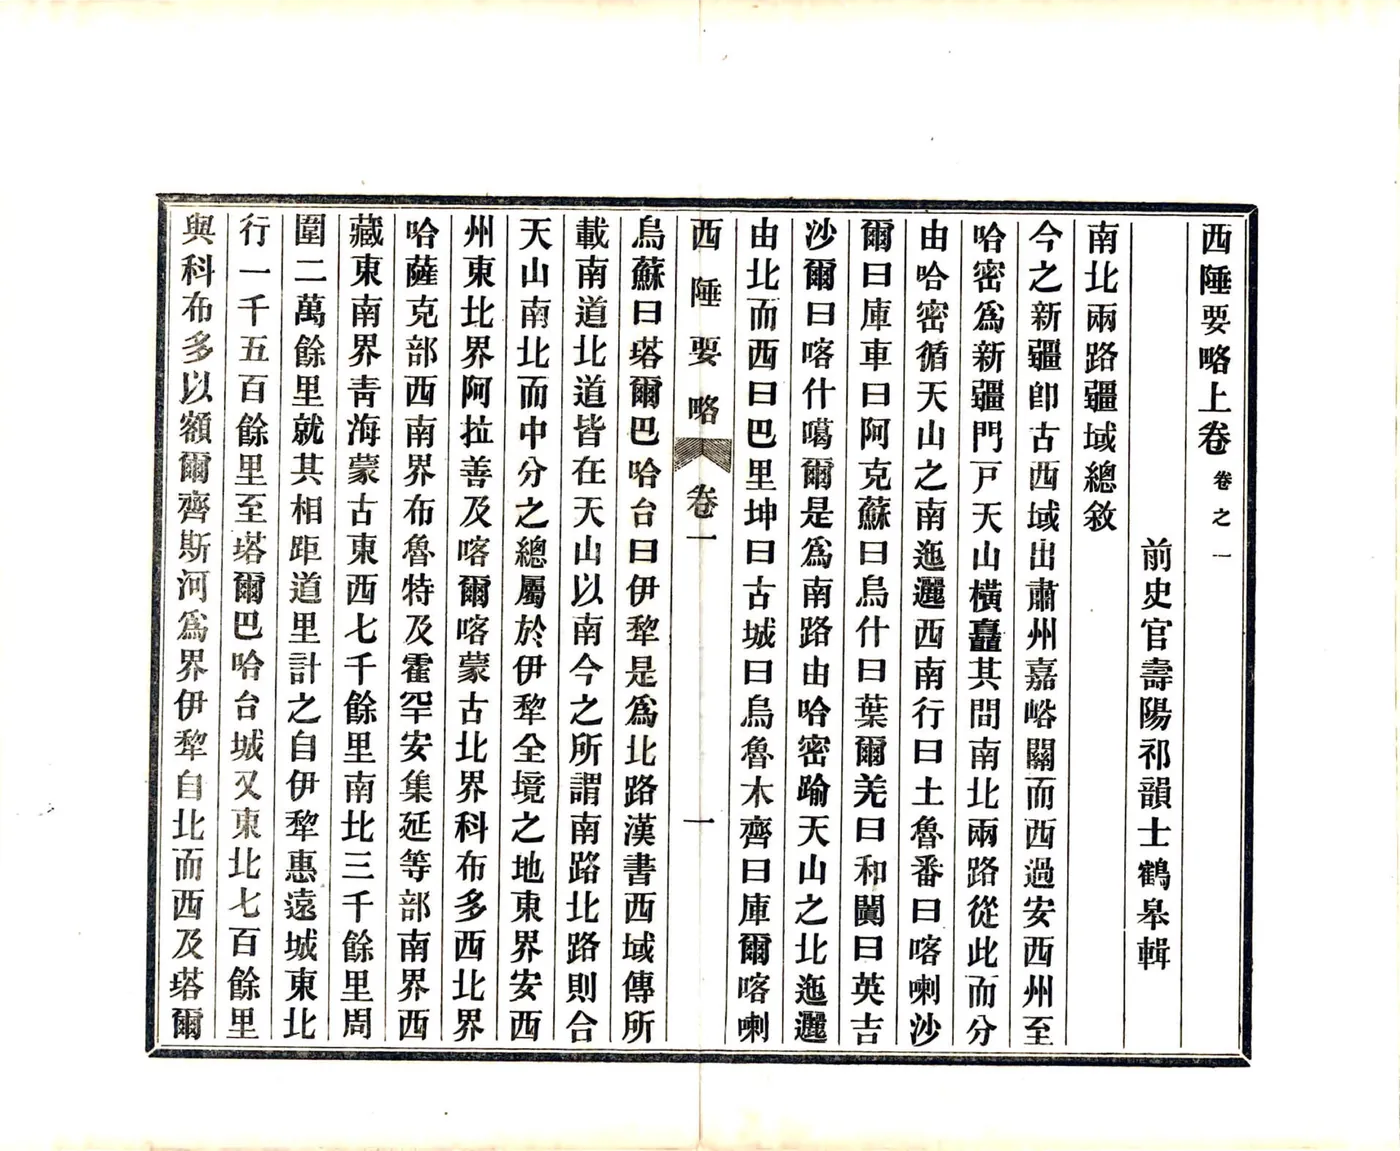 西陲要略上卷 卷之一
前史官壽陽祁韻士鶴皋輯
南北兩路疆域總敘
今之新疆卽古西域出肅州嘉峪關而西過安西州至
哈密爲新疆門戸天山橫矗其間南北兩路從此而分
由哈密循天山之南迤邐西南行曰土魯番曰喀喇沙
爾曰庫車曰阿克蘇曰烏什曰葉爾羌曰和闐曰英吉
沙爾曰喀什噶爾是爲南路由哈密踰天山之北迤邐
由北而西曰巴里坤曰古城曰烏魯木齊曰庫爾喀喇
西陲要略 卷一 一
烏蘇曰塔爾巴哈台曰伊犂是爲北路漢書西域傳所
載南道北道皆在天山以南今之所謂南路北路則合
天山南北而中分之總屬於伊犂全境之地東界安西
州東北界阿拉善及喀爾喀蒙古北界科布多西北界
哈薩克部西南界布魯特及霍罕安集延等部南界西
藏東南界靑海蒙古東西七千餘里南北三千餘里周
圍二萬餘里就其相距道里計之自伊犂惠遠城東北
行一千五百餘里至塔爾巴哈台城又東北七百餘里
與科布多以額爾齊斯河爲界伊犂自北而西及塔爾